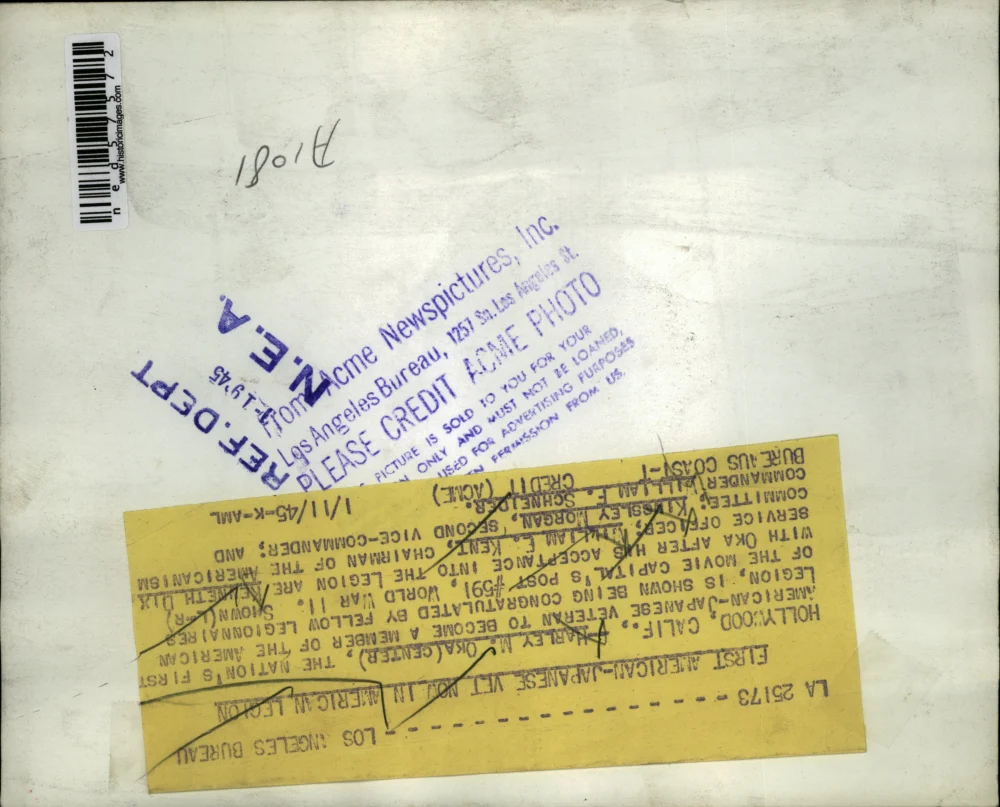 ned57572
www.historicimages.com
A1081
N.E.A.
REF. DEPT
1-19'45
From Acme Newspictures, Inc.
Los Angeles Bureau, 1257 So. Los Angeles St.
PLEASE CREDIT ACME PHOTO
PICTURE IS SOLD TO YOU FOR YOUR
ONLY AND MUST NOT BE LOANED,
USED FOR ADVERTISING PURPOSES
PERMISSION FROM US.
LA 25173 - - - - - - - - - - - - - - - - - - - LOS ANGELES BUREAU
FIRST AMERICAN-JAPANESE VET NOW IN AMERICAN LEGION
HOLLYWOOD, CALIF., HARLEY M. OKA (CENTER), THE NATION'S FIRST
AMERICAN-JAPANESE VETERAN TO BECOME A MEMBER OF THE AMERICAN
LEGION, IS SHOWN BEING CONGRATULATED BY FELLOW LEGIONNAIRES
OF THE MOVIE CAPITAL'S POST #591, WORLD WAR II. SHOWN (L-R)
WITH OKA AFTER HIS ACCEPTANCE INTO THE LEGION ARE KENNETH DIX
SERVICE OFFICER, WILLIAM E. KENT, CHAIRMAN OF THE AMERICANISM
COMMITTEE; KINGSLEY MORGAN, SECOND VICE-COMMANDER; AND
COMMANDER WILLIAM F. SCHNEIDER.
BUREAUS COAST-1 CREDIT (ACME) 1/11/45-K-AML